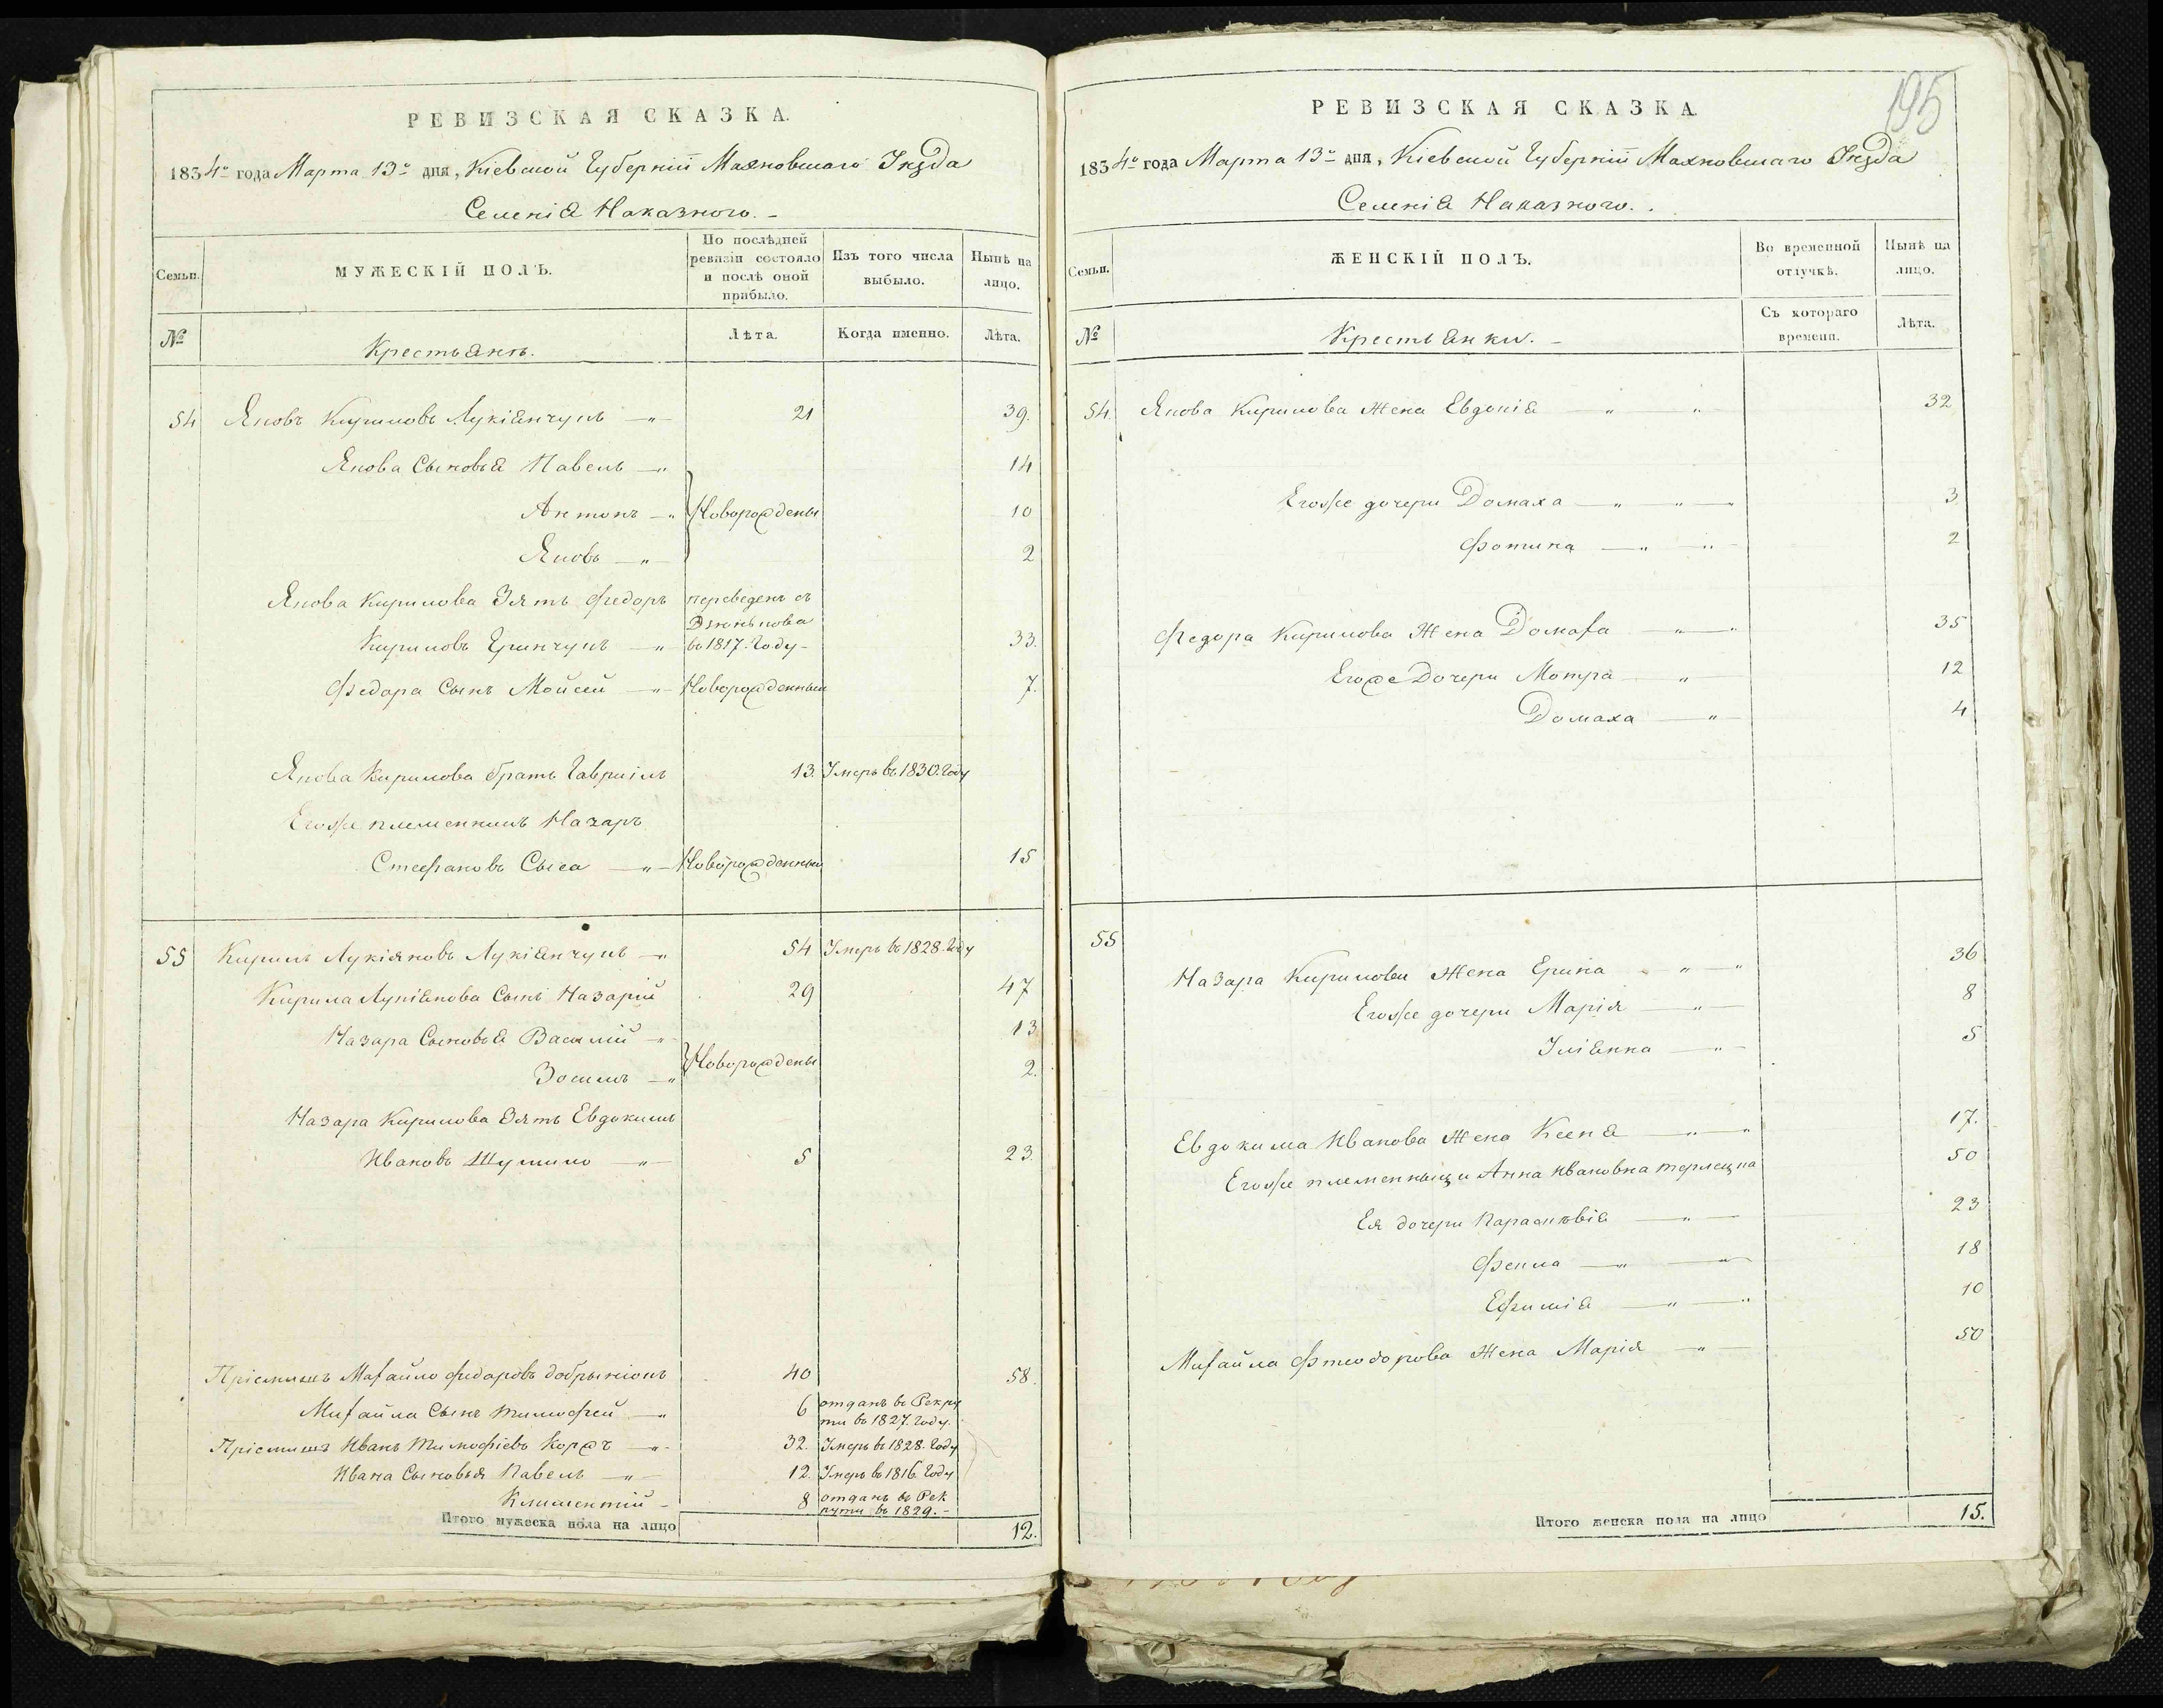 РЕВИЗСКАЯ СКАЗКА.
1834го года Марта 13го дня, Кіевской Губерніи Махновскаго Уѣзда
Селенія Наказного. –
Семьи.
МУЖЕСКІЙ ПОЛЪ.
По послѣдней ревизіи состояло и послѣ оной прибыло.
Изъ того числа выбыло.
Нынѣ на лицо.
№
Крестьянъ.
Лѣта.
Когда именно.
Лѣта.
54 Яковъ Кириловъ Лукіянчукъ — 〃 21 39.
Якова Сыновья Павелъ — 〃 14
Антонъ — 〃 Новорождены 10
Яковъ — 〃 2
Якова Кирилова Зять Федоръ переведенъ съ
Кириловъ Гринчукъ — 〃 въ 1817. Году – 33.
Федора Сынъ Мойсей — 〃 Новорожденный 7.
Якова Кирилова братъ Гавриилъ 13. Умеръ въ 1830. Году
Егоже племенникъ Назаръ
Стефановъ Сыса — 〃 — Новорожденный 15
55 Кирилъ Лукіяновъ Лукіянчукъ — 〃 54 Умеръ въ 1828. Году
Кирила Лукіянова Сынъ Назарій 29 47
Назара Сыновья Василій — 〃 13
Зосимъ — 〃 Новорождены 2.
Назара Кирилова Зять Евдокимъ
Ивановъ Шумило — 〃 5 23.
Пріемышъ Михайло Федоровъ Добрынюкъ 40 58.
Михайла Сынъ Тимофей — 〃 6 отданъ въ Рекру
ти въ 1827. Году.
Пріемышъ Иванъ Тимофіевъ Коржъ — 〃 32. Умеръ въ 1828. Году
Ивана Сыновья Павелъ — 〃 12. Умеръ въ 1816. Году
Климентій – 8 отданъ въ Рек
рути въ 1829. –
Итого мужеска пола на лицо 12.
195
РЕВИЗСКАЯ СКАЗКА.
1834го года Марта 13го дня, Кіевской Губерніи Махновскаго Уѣзда
Селенія Наказного. .
Семьи.
ЖЕНСКІЙ ПОЛЪ.
Во временной отлучкѣ.
Нынѣ на лицо.
№
Крестьянки. –
Съ котораго времени.
Лѣта.
54. Якова Кирилова Жена Евдокія — 〃 〃 32
Егоже дочери Домаха — 〃 — 〃 — 3.
Фотина — 〃 — 〃 2
Федора Кирилова Жена Домаха — 〃 — 〃 35
Егоже Дочери Мотря — 〃 — 12
Домаха — 〃 — 4
55
Назара Кирилова Жена Ерина — 〃 — 〃 36
Егоже дочери Марія — 〃 — 8
Уліянна — 〃 — 5
Евдокима Иванова Жена Ксенія — 〃 — 〃 17.
Егоже племенныци Анна Ивановна 50
Ея дочери Параскѣвія — 〃 — 23
Фекла — 〃 — 〃 18
Ефимія — 〃 — 〃 10
Михайла Фтеодорова Жена Марія — 〃 — 50
Итого женска пола на лицо 15.